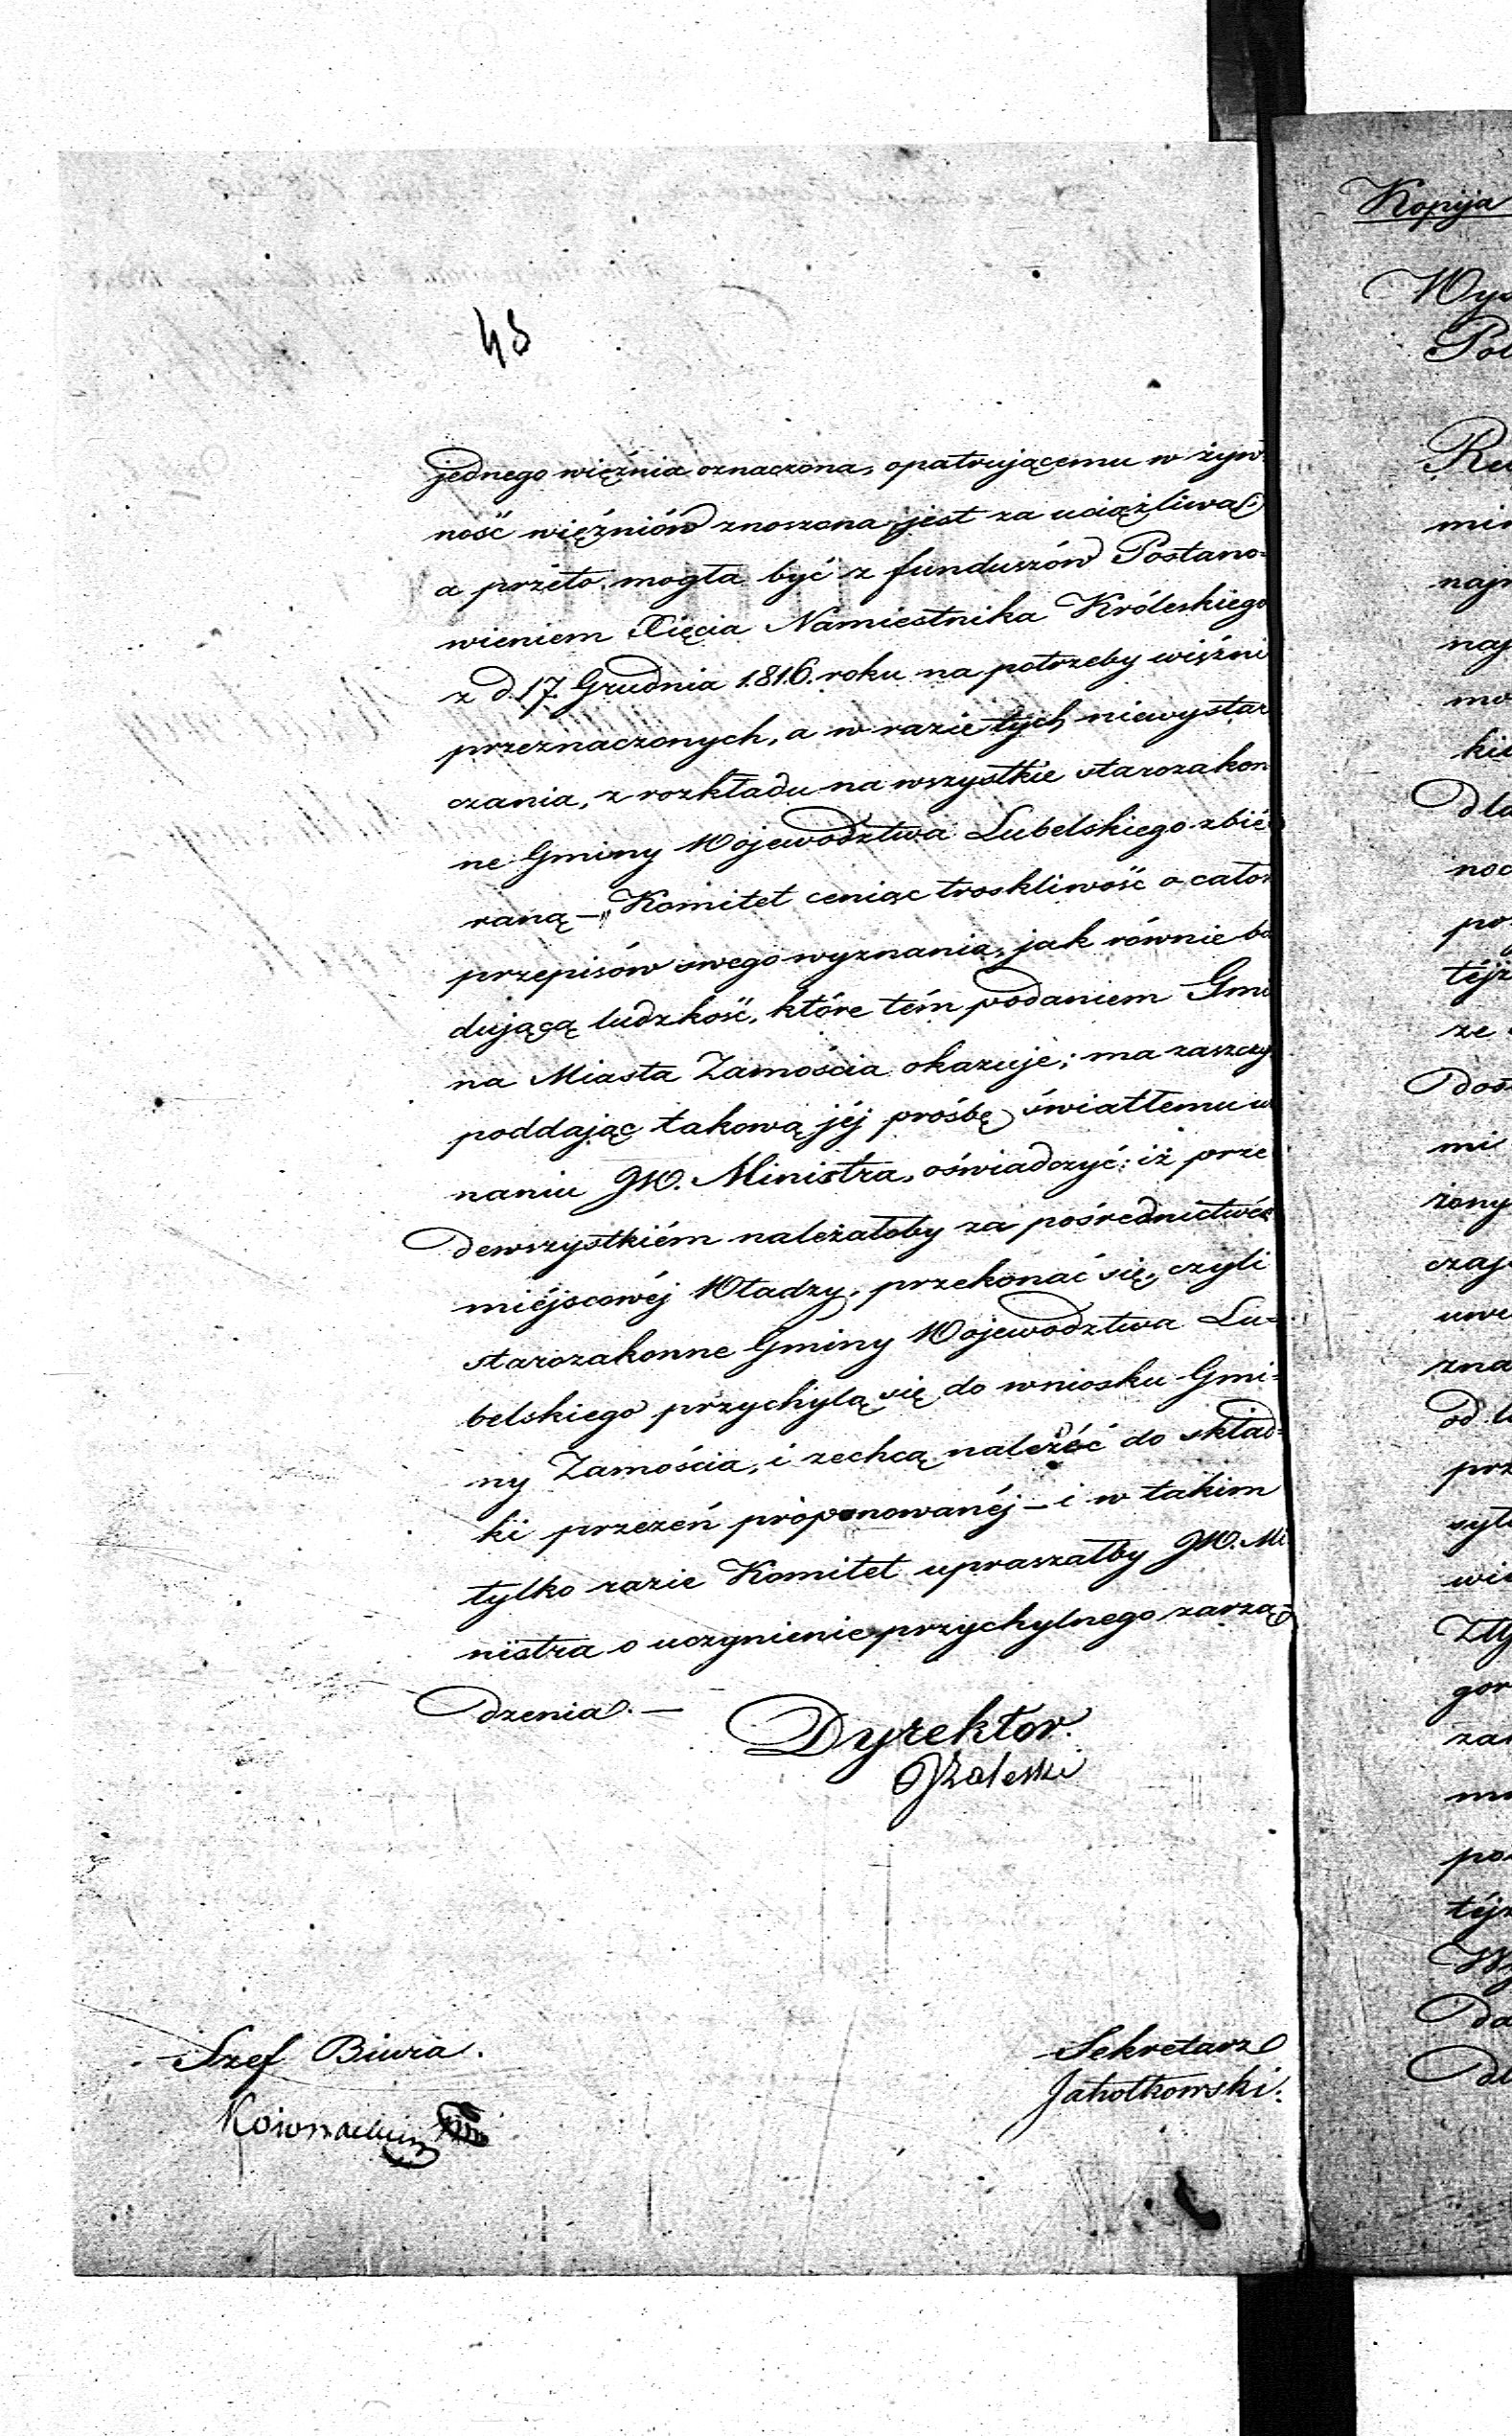 48
jednego więźnia oznaczona, opatrującemu w żyw
ność więźniów znoszona jest za uciążliwa
a przeto mogła być z funduszów Postano-
wieniem Xięcia Namiestnika Królewskiego
z d. 17. Grudnia 1816. roku na potrzeby więźni
przeznaczonych, a w razie tych niewystar
czania, z rozkładu na wszystkie starozakon
ne Gminy Województwa Lubelskiego zbie
raną — Komitet ceniąc troskliwość o całość
przepisów swego wyznania, jak równie bu
dującą ludzkość, które tém podaniem Gmi
na Miasta Zamościa okazuje; ma zaszczyt
poddając takową jéj prośbę światłemu u
naniu JW. Ministra, oświadczyć: iż prze
dewszystkiém należałoby za pośrednictwem
miéjscowéj Władzy, przekonać się, czyli
starozakonne Gminy Województwa Lu-
belskiego przychylą się do wniosku Gmi-
ny Zamościa, i zechcą należéć do skład-
ki przezeń proponowanéj — i w takim
tylko razie Komitet upraszałby JW. Mi
nistra o uczynienie przychylnego zarzą
dzenia. —
Dyrektor.
Zaleski
Szef Biura.
Sekretarz
Kopija
Wys
Pol
Re
min
naj
naj
mo
kie
Dla
noc
po
téjż
ze
Dos
mi
żony
czaj
uwi
zna
od
prz
wi
Zły
gor
zas
po
téjż
Da